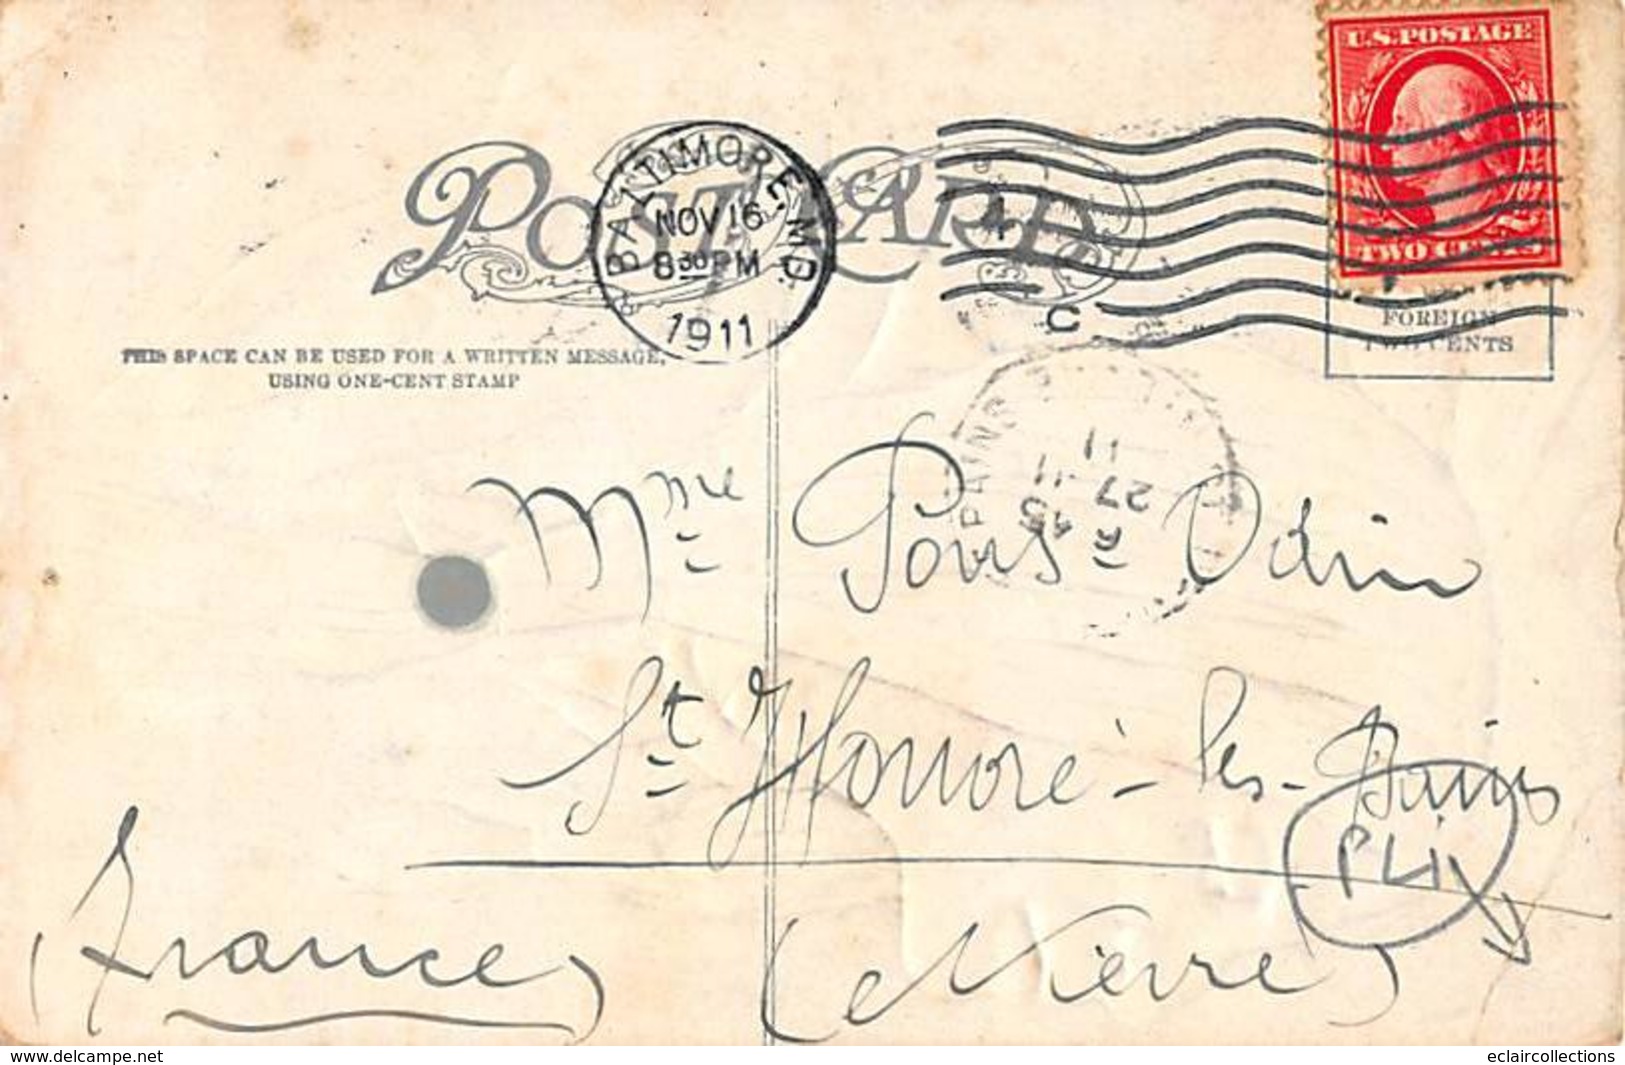 U.S.POSTAGE
TWO CENTS
POST CARD
BALTIMORE. MD.
NOV 16
8 30 PM
1911
4
C
FOREIGN
TWO CENTS
THIS SPACE CAN BE USED FOR A WRITTEN MESSAGE,
USING ONE-CENT STAMP
BAINS
15
27 11
11
Mme Pons Odin
St Honoré-les-Bains
PLI
(Nièvre)
(France)
www.delcampe.net
eclaircollections